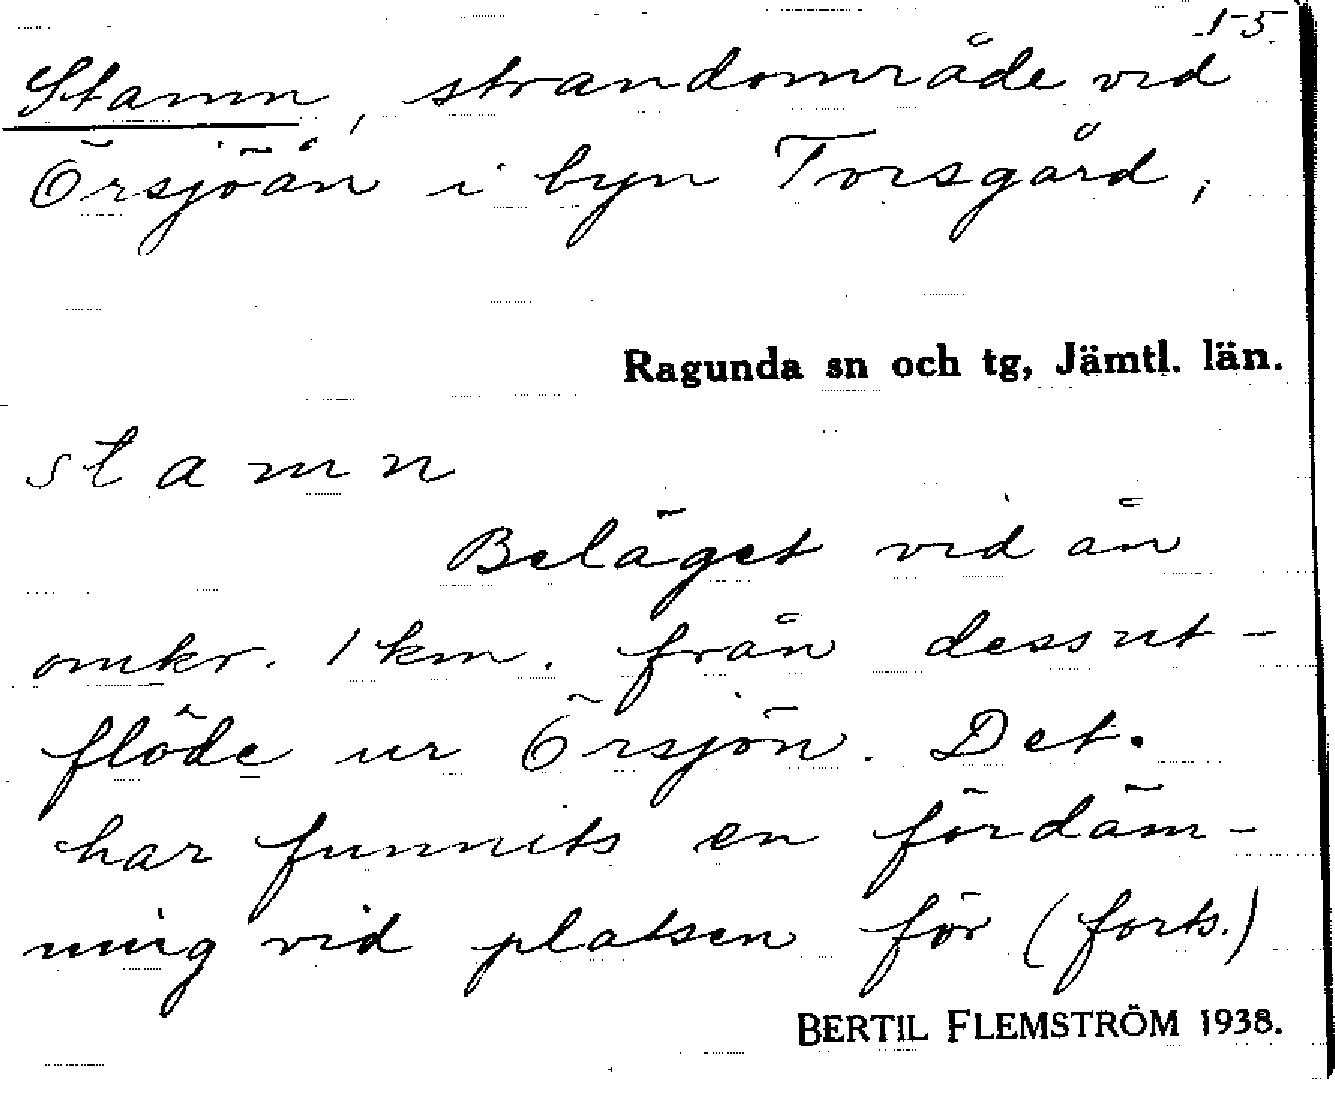 15.
Stamn, strandområde vid
Örsjöån i byn Torsgård,
Ragunda sn och tg, Jämtl. län.
stamn
Beläget vid ån
omkr. 1 km. från dess ut-
flöde ur Örsjön. Det.
har funnits en fördäm-
ning vid platsen för (forts.)
BERTIL FLEMSTRÖM 1938.